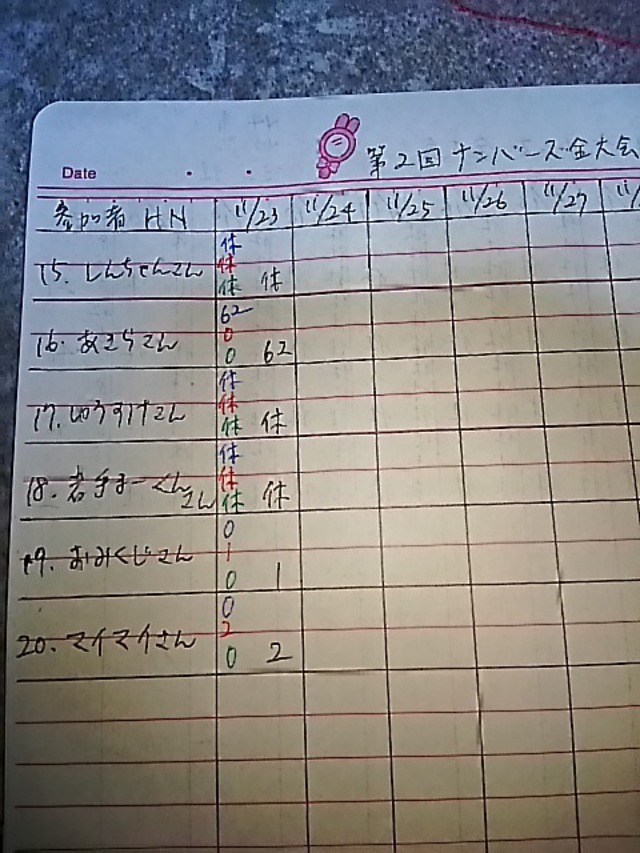 Date
第2回ナンバーズ金大会
参加者 HN 11/23 11/24 11/25 11/26 11/27 11/
休
15. しんちゃんさん 休
休 休
62
16. あきらさん 0
0 62
休
17. ゆうすけさん 休
休 休
休
18. 若手まーくん 休
さん 休 休
0
19. おみくじさん 1
0 1
0
20. マイマイさん 2
0 2